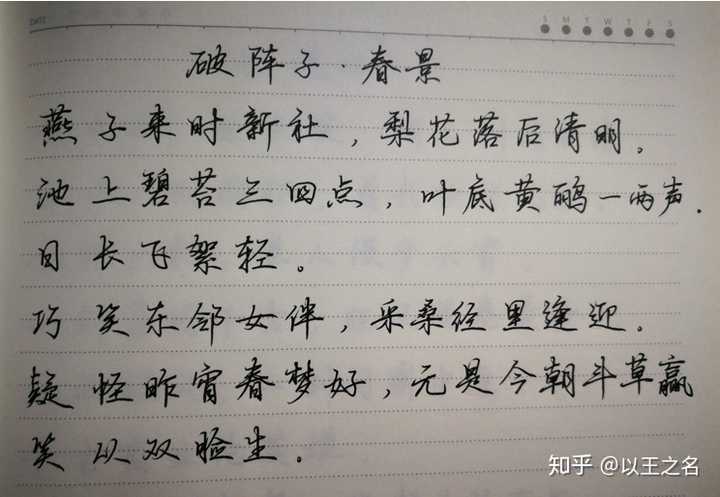 DATE
S M T W T F S
破阵子·春景
燕子来时新社，梨花落后清明。
池上碧苔三四点，叶底黄鹂一两声.
日长飞絮轻。
巧笑东邻女伴，采桑径里逢迎.
疑怪昨宵春梦好，元是今朝斗草赢
笑从双脸生.
知乎 @以王之名